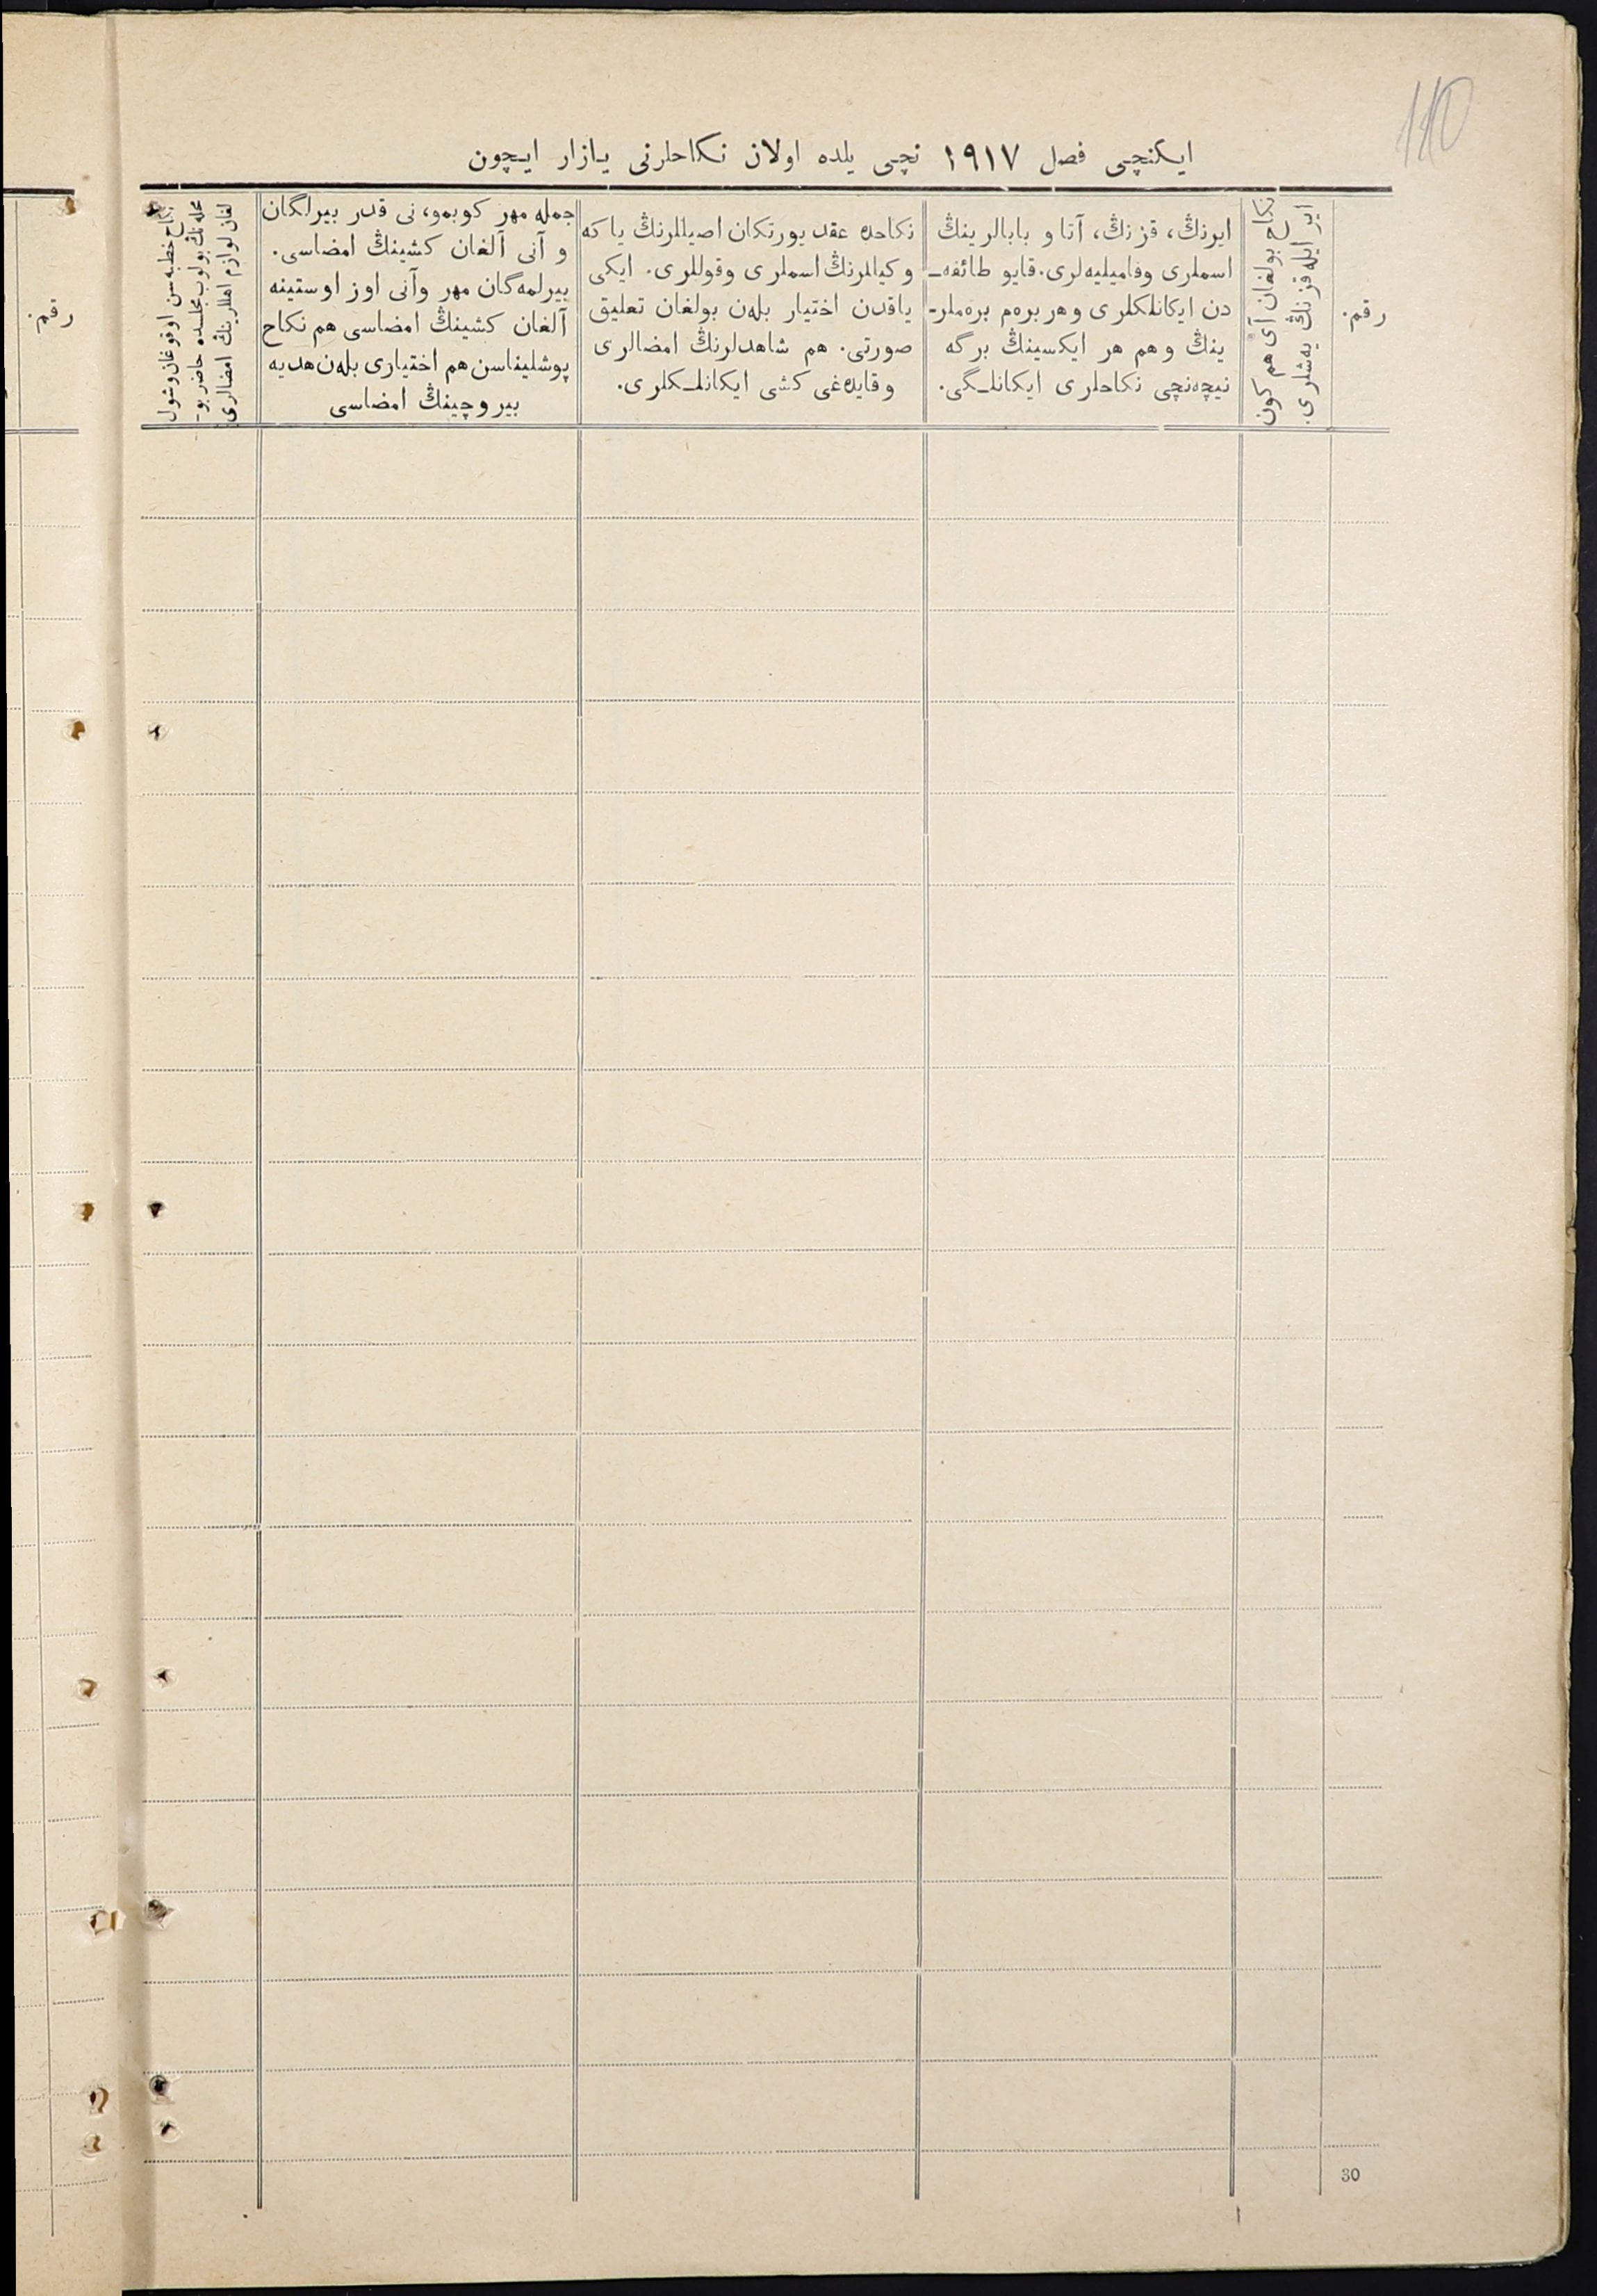 110
ایکنچی فصل ۱۹۱۷ نچی یلده اولان نکاحلرنی یازار ایچون
رقم.
نکاح بولغان آی هم کون
ایر ایله قزنڭ یه‌شلری.
ایرنڭ، قزنڭ، آتا و بابالرینڭ
اسملری وفامیلیه‌لری. قایو طائفه‌ـ
دن ایکانلکلری وهر بره‌م بره‌ملر-
ینڭ وهم هر ایکسینڭ برگه
نیچه‌نچی نکاحلری ایکانلـگی.
نکاحده عقد یورتکان اصیللرنڭ یاکه
وکیللرنڭ اسملری وقوللری. ایکی
یاقدن اختیار بله‌ن بولغان تعلیق
صورتی. هم شاهدلرنڭ امضالری
وقایده‌غی کشی ایکانلـکلری.
جمله مهر کوبمو، نی قدر بیرلگان
و آنی آلغان کشینڭ امضاسی.
بیرلمه‌گان مهر وآنی اوز اوستینه
آلغان کشینڭ امضاسی هم نکاح
پوشلیناسن هم اختیاری بله‌ن هدیه
بیروچینڭ امضاسی
نکاح خطبه‌سن اوقوغان وشول
محله‌نڭ بولوب مجلسده حاضر بو-
لغان لوازم اهللرینڭ امضالری
رقم.
30